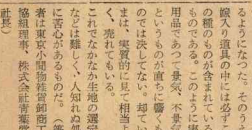 るやうになつた。そ
嫁入り道具の中には必ず
の種のものが含まれてい
る。このように實
用品であつて景氣、不景
というものが直ちに響も
のでは決してない。却てい
まは、實質的に見て相当
く、売れてもいる。
これでなかなか生地の選定
などは難しく、人知れぬ
に苦心があるものだ。（筆
者は東京小間物雑貨卸商工
協組理事、株式会社青葉
社長）